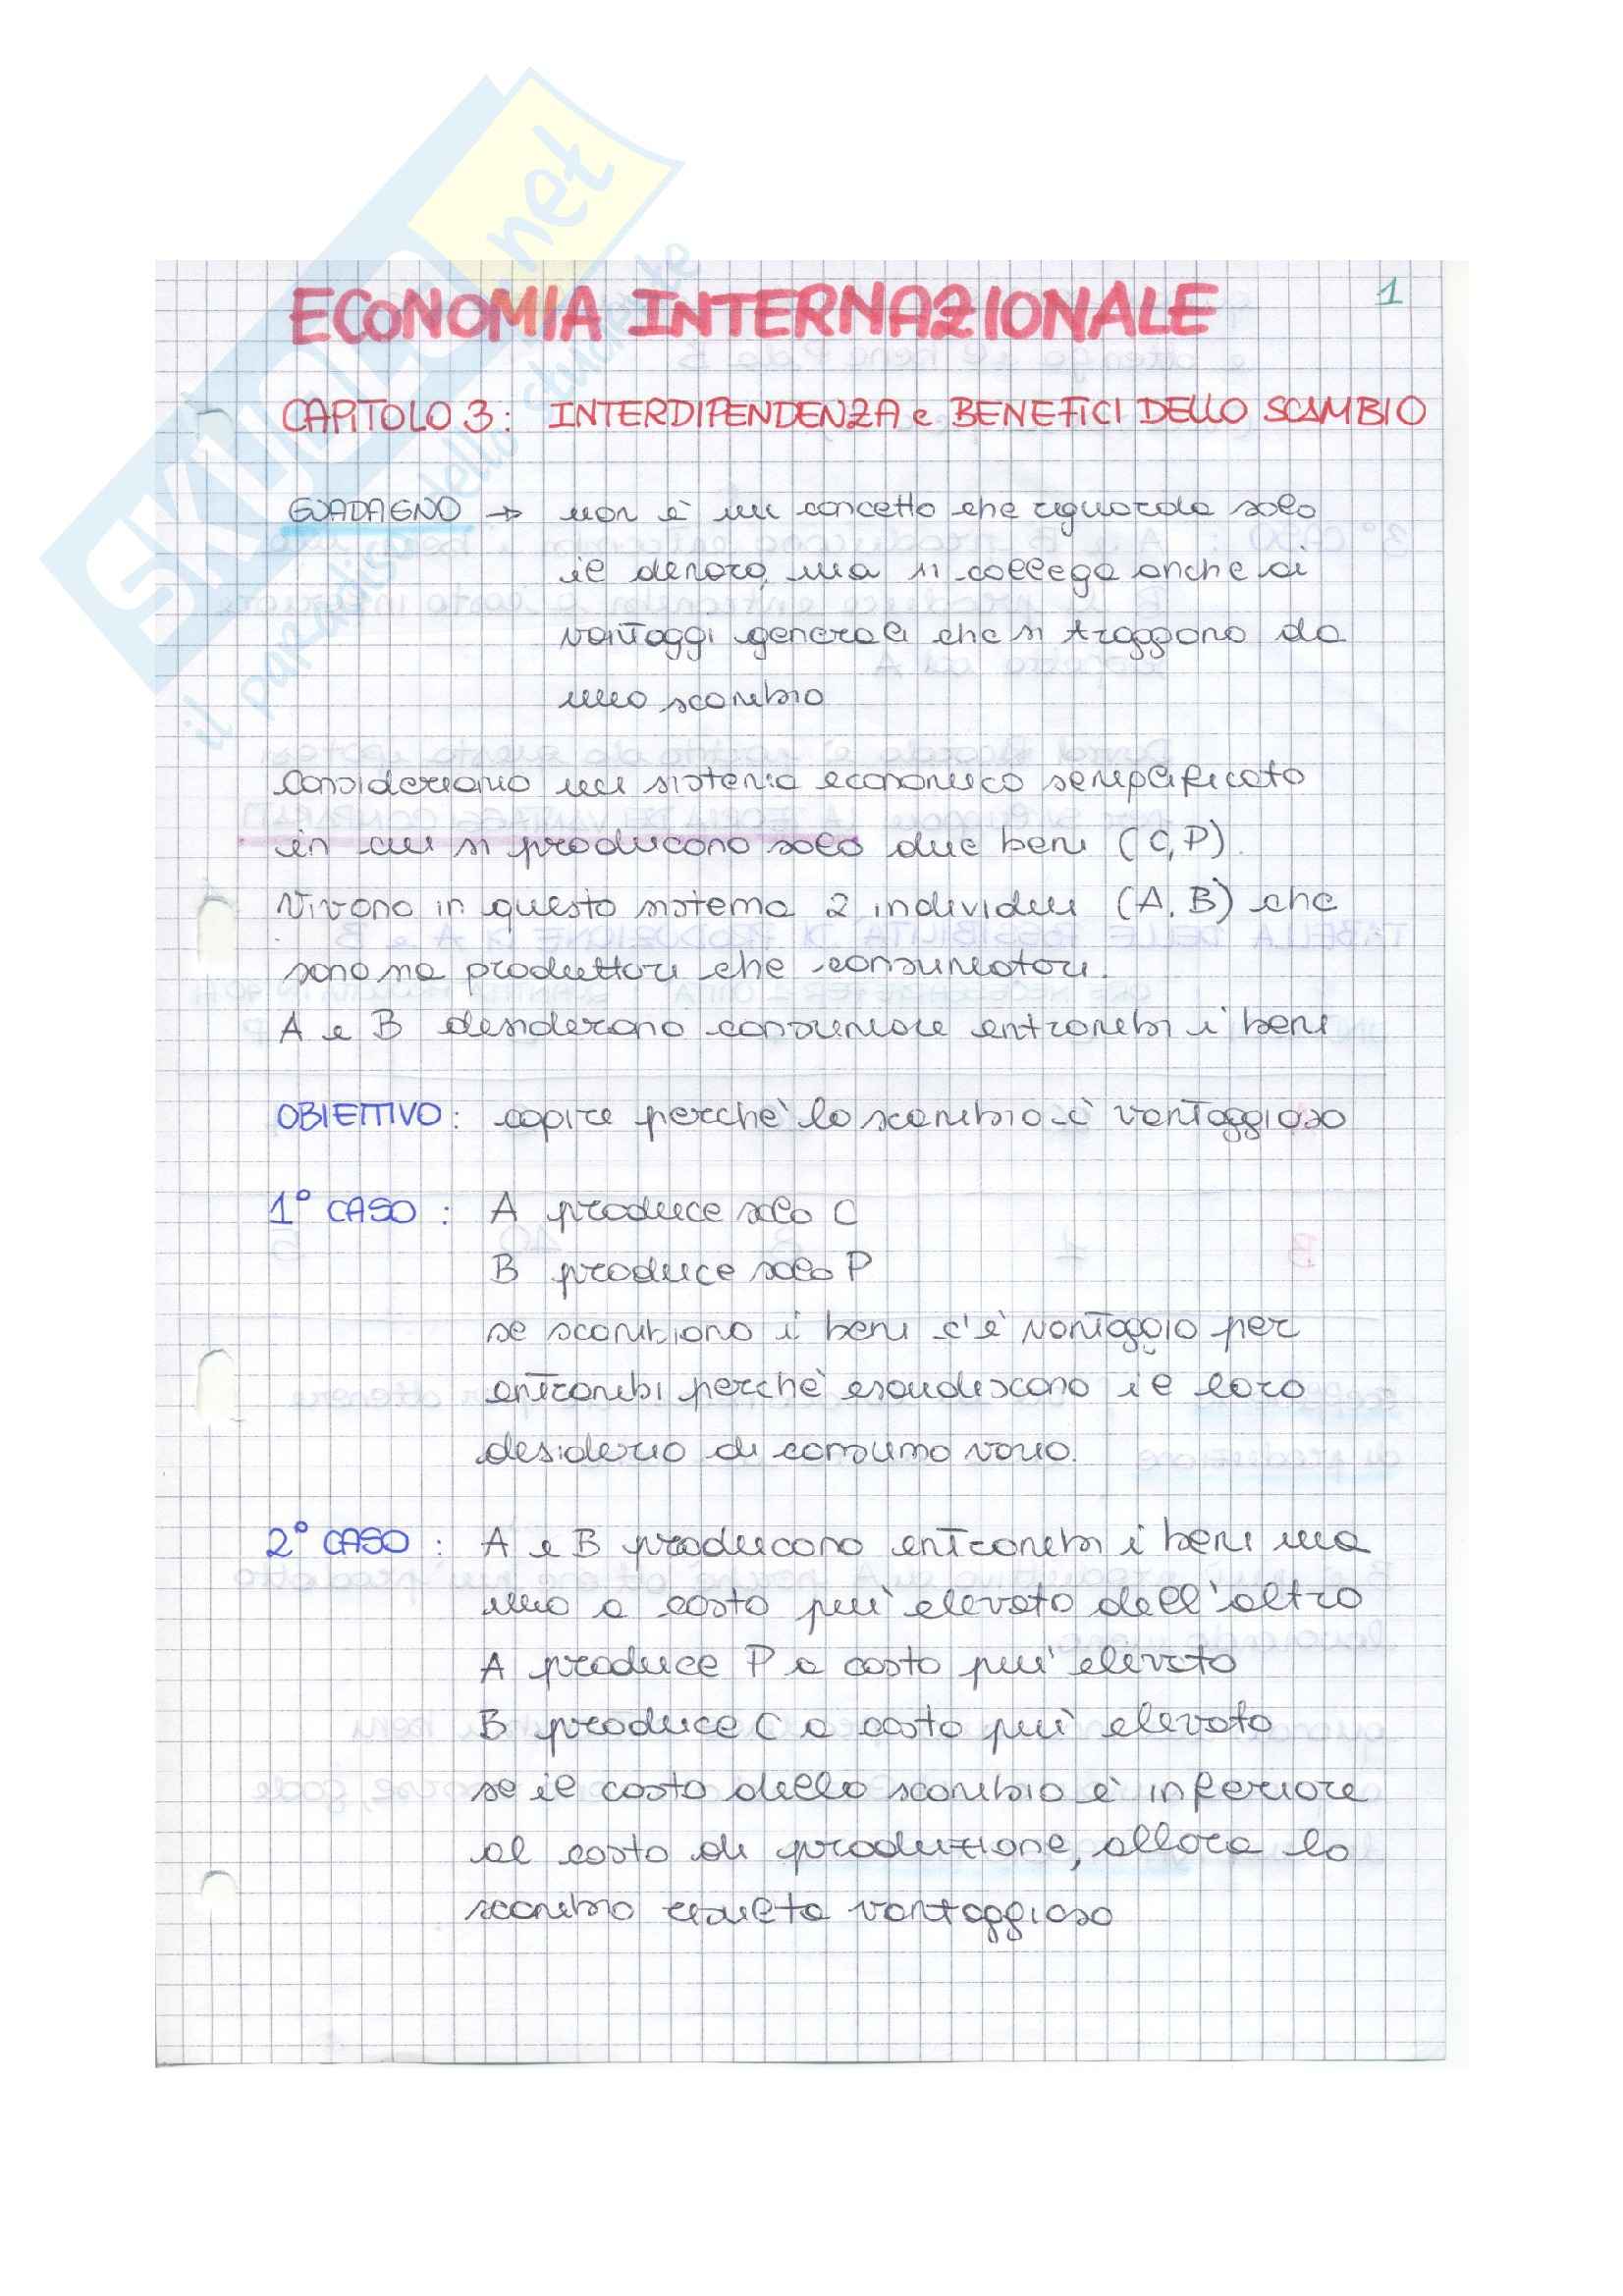 SKUOLA.net
il paradiso dello studente
1
ECONOMIA INTERNAZIONALE
CAPITOLO 3: INTERDIPENDENZA e BENEFICI DELLO SCAMBIO
GUADAGNO → non è un concetto che riguarda solo
il denaro, ma si collega anche ai
vantaggi generali che si traggono da
uno scambio
Consideriamo un sistema economico semplificato
in cui si producono solo due beni (C,P).
Vivono in questo sistema 2 individui (A, B) che
sono sia produttori che consumatori.
A e B desiderano consumare entrambi i beni
OBIETTIVO: capire perchè lo scambio è vantaggioso
1° CASO : A produce solo C
B produce solo P
se scambiano i beni c'è vantaggio per
entrambi perchè esaudiscono il loro
desiderio di consumo vario.
2° CASO : A e B producono entrambi i beni ma
uno a costo più elevato dell'altro
A produce P a costo più elevato
B produce C a costo più elevato
se il costo dello scambio è inferiore
al costo di produzione, allora lo
scambio risulta vantaggioso